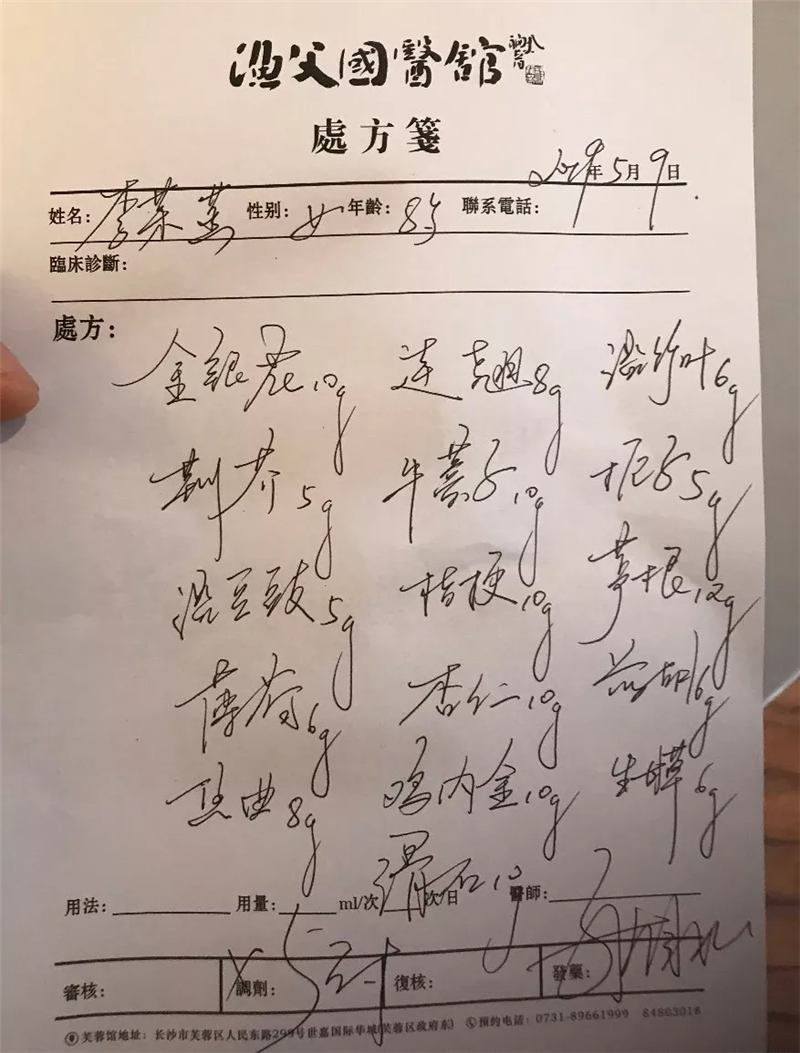 漁父國醫館
處方箋
2019年5月9日
姓名: 李 性别: 女 年齡: 8岁 聯系電話:
臨床診斷:
處方:
金银花10g 连翘8g 淡竹叶6g
荆芥5g 牛蒡子10g 栀子5g
淡豆豉5g 桔梗10g 芦根12g
薄荷6g 杏仁10g 前胡6g
焦曲8g 鸡内金10g 生草6g
滑石10g
用法: 用量: ml/次 次/日 醫師:
審核: 調劑: ×5付 復核: 發藥:
芙蓉馆地址: 长沙市芙蓉区人民东路299号世嘉国际华城(芙蓉区政府东) 预约电话: 0731-89661999 84863018